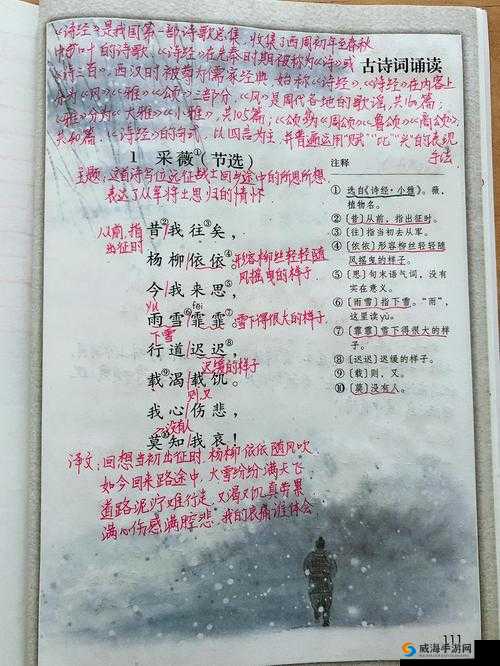 《诗经》是我国第一部诗歌总集,收集了西周初年至春秋
中叶的诗歌,《诗经》在先秦时期被称为《诗》或
《诗三百》,西汉时被尊为儒家经典,始称《诗经》,《诗经》在内容上
分为《风》《雅》《颂》三部分,《风》是周代各地的歌谣,共160篇;
《雅》分为《大雅》《小雅》,共105篇;《颂》为《周颂》《鲁颂》《商颂》,
共40篇.《诗经》的句式,以四言为主,并普遍运用"赋""比""兴"的表现
手法
古诗词诵读
1 采薇①(节选)
主题:这首诗写位远征战士回乡途中的所思所想,
表达了从军将士思归的情怀
从前,指出征时
昔②我往③矣,
杨柳依依④。形容柳丝轻轻随风摇曳的样子.
今我来思⑤,
yù fēi
雨雪⑥霏霏⑦。雪下得很大的样子.
下雪
行道迟迟⑧,
迟缓的样子
载⑨渴载饥。
则又
我心伤悲,
没有人
莫⑩知我哀!
译文:回想当初出征时.杨柳依依随风吹
如今回来路途中,大雪纷纷满天飞
道路泥泞难行走,又渴又饥真劳累
满心伤感满腔悲.我的哀痛谁体会
注释
① 选自《诗经·小雅》。薇,
植物名。
② 〔昔〕从前,指出征时。
③ 〔往〕指当初去从军。
④ 〔依依〕形容柳丝轻轻随
风摇曳的样子。
⑤ 〔思〕句末语气词,没有
实在意义。
⑥ 〔雨雪〕指下雪。"雨",
这里读yù。
⑦ 〔霏霏〕雪下得很大的样
子。
⑧ 〔迟迟〕迟缓的样子。
⑨ 〔载〕则,又。
⑩ 〔莫〕没有人。
111
威海手游网